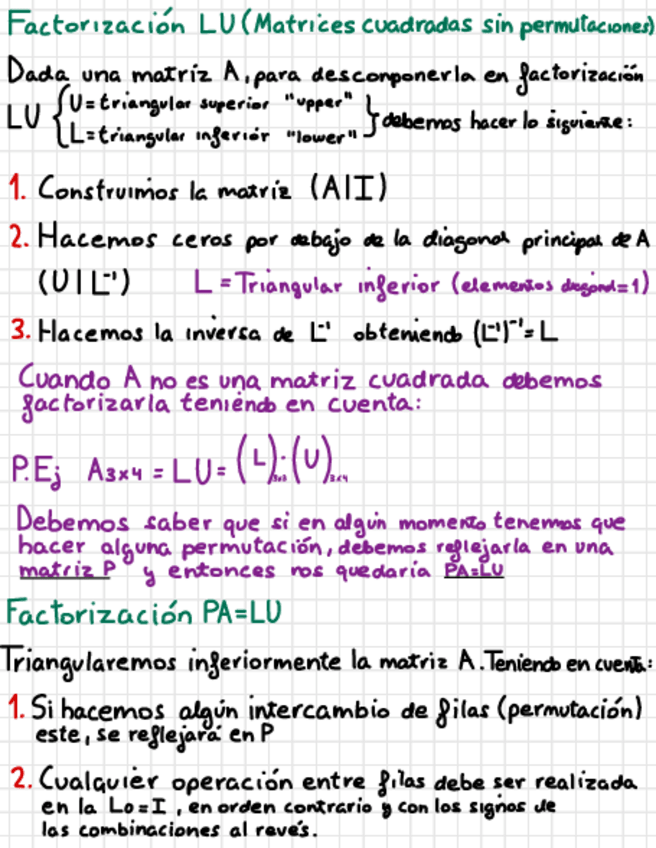 Factorización LU (Matrices cuadradas sin permutaciones)
Dada una matriz A, para desconponerla en factorización
LU { U = triangular superior "upper"
L = triangular inferior "lower" } debemos hacer lo siguiente:
1. Construimos la matriz (A|I)
2. Hacemos ceros por debajo de la diagonal principal de A
(U|L⁻¹) L = Triangular inferior (elementos diagonal=1)
3. Hacemos la inversa de L⁻¹ obteniendo (L⁻¹)⁻¹ = L
Cuando A no es una matriz cuadrada debemos
factorizarla teniendo en cuenta:
P.Ej A₃ₓ₄ = LU = (L)₃ₓ₃·(U)₃ₓ₄
Debemos saber que si en algún momento tenemos que
hacer alguna permutación, debemos reflejarla en una
matriz P y entonces nos quedaría PA=LU
Factorización PA=LU
Triangularemos inferiormente la matriz A. Teniendo en cuenta:
1. Si hacemos algún intercambio de filas (permutación)
este, se reflejará en P
2. Cualquier operación entre filas debe ser realizada
en la L₀=I, en orden contrario y con los signos de
las combinaciones al revés.